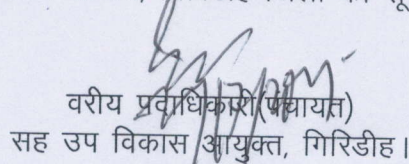 वरीय पदाधिकारी(पंचायत)
सह उप विकास आयुक्त, गिरिडीह।